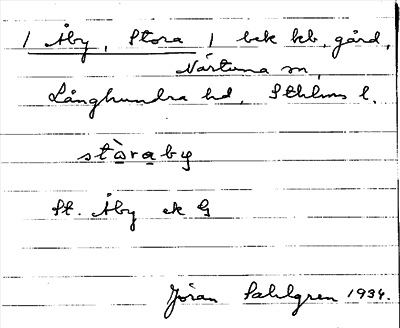 / Åby, Stora / bek kb. gård,
Närtuna sn,
Långhundra hd, Sthlms l.
stòraby
St. Åby ek G
Jöran Sahlgren 1934.